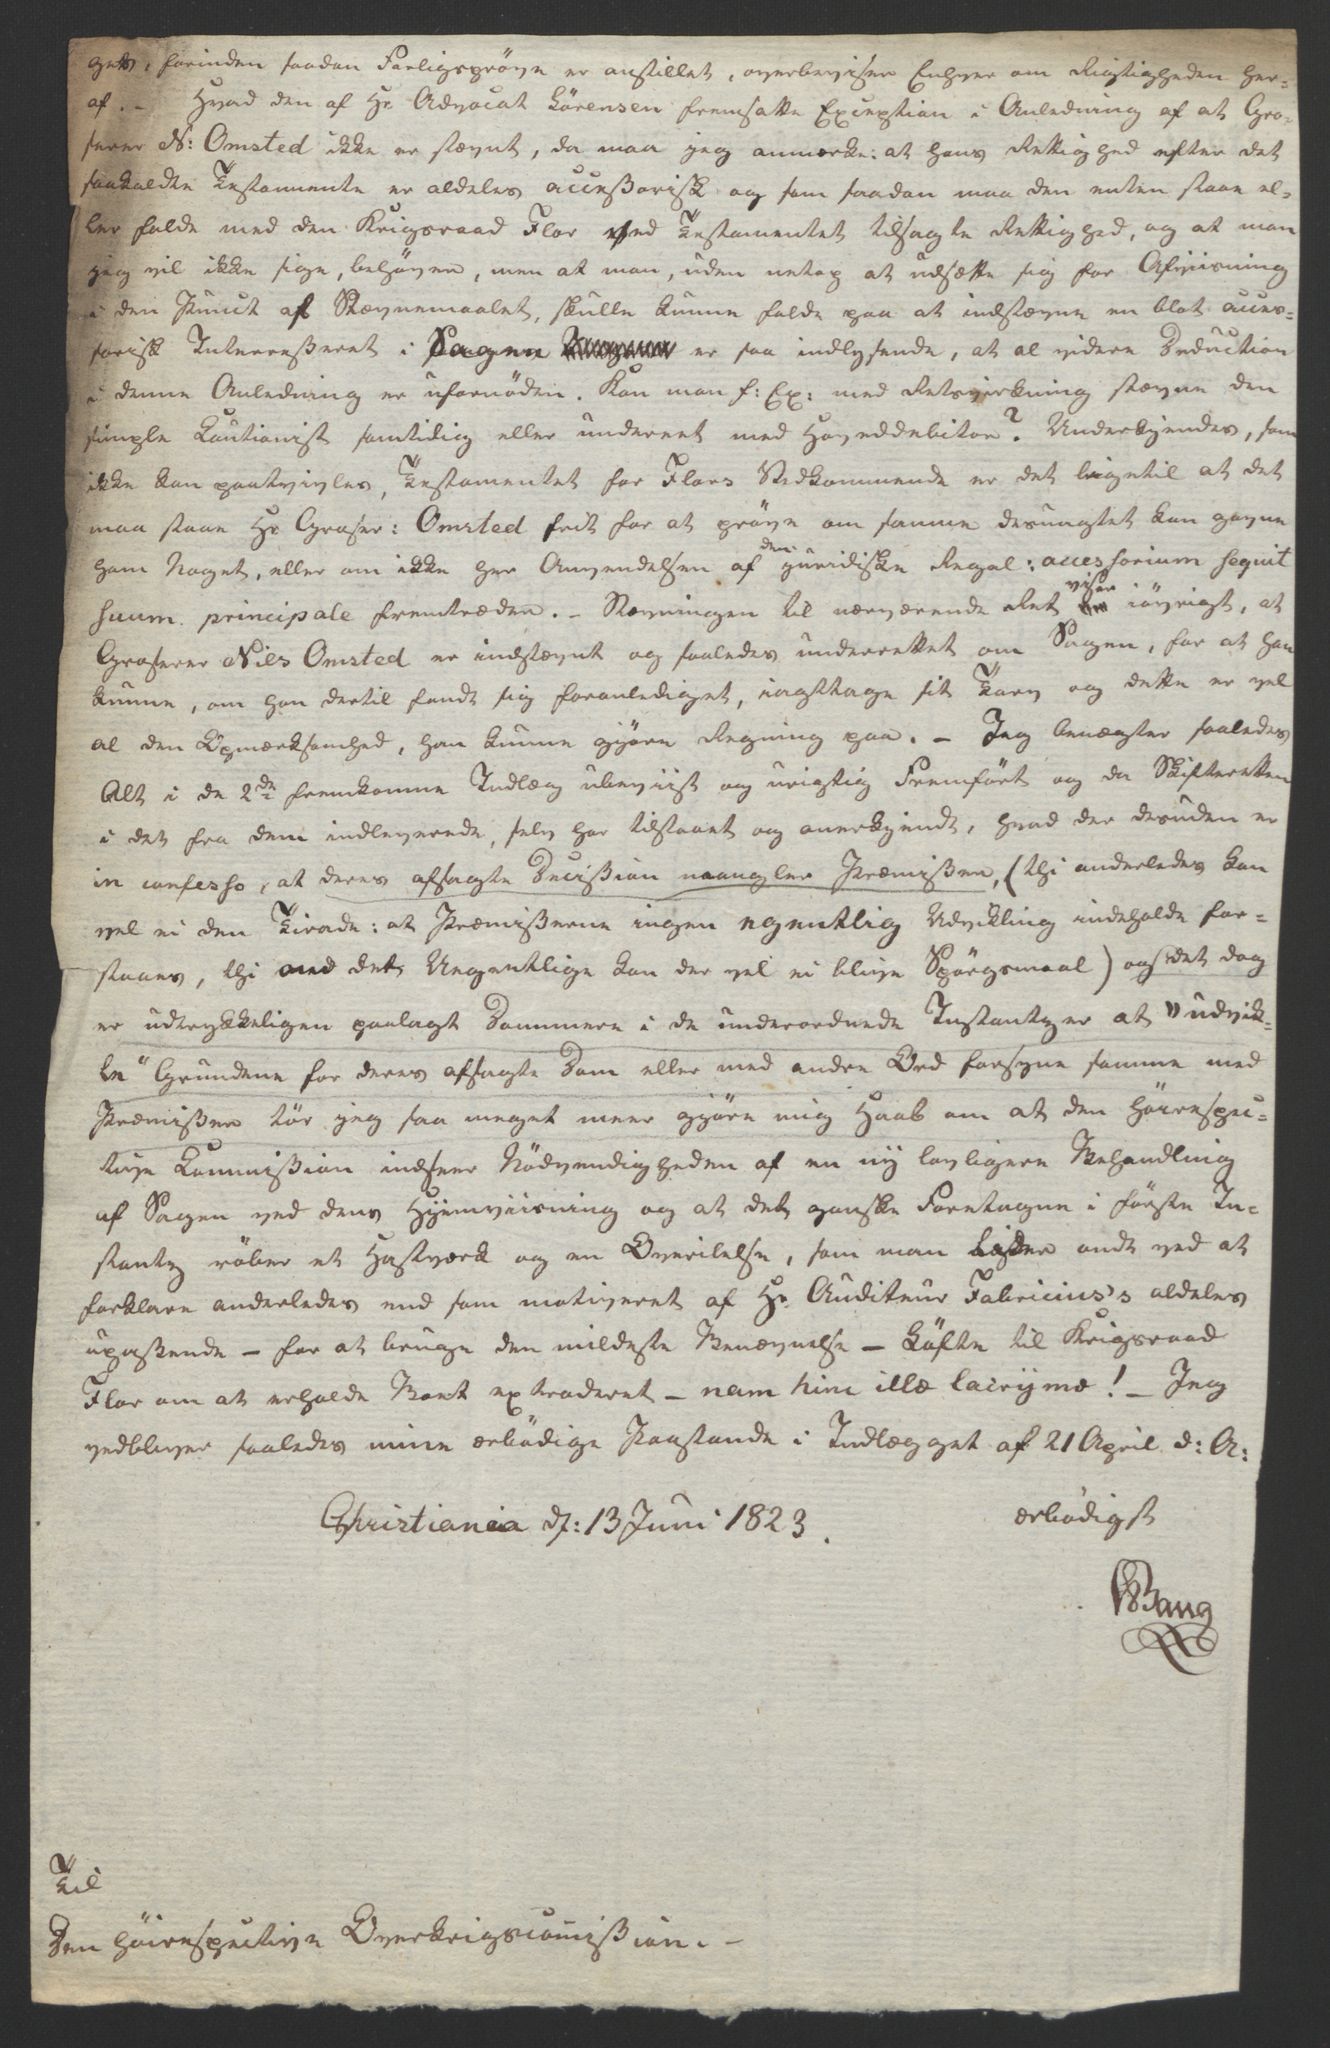 gets, forinden saadan Farligspröve er anstillet, overbeviser Enhver om Rigtigheden her-
af. – Hvad den af Hr Advocat Sörensen fremsatte Exception i Anledning af at Gro-
serer N: Omsted ikke er stævnt, da maa jeg anmærke: at hans Rettighed efter det
saakaldte Testamente er aldeles accessorisk og som saadan maa den enten staae el-
ler falde med den Krigsraad Flor ved Testamentet tilsagte Rettighed, og at man
jeg vil ikke sige, behöver, men at man, uden netop at udsætte sig for Afviisning
i den Punct af Stævnemaalet, skulle kunne falde paa at indstævne en blot acces-
sorisk Interesseret i Sagen er saa indlysende, at al videre Deduction
i denne Anledning er ufornöden. Kan man f: Ex: med Retsvirkning stævne den
simple Cautionist samtidig eller underet med Hoveddebitor? Underkjendes, som
ikke kan paatvivles, Testamentet for Flors Vedkommende er det ligetil at det
maa staae Hr Groser: Omsted frit for at pröve om samme desuagtet kan gavne
ham Noget, eller om ikke her Anvendelsen af den juridiske Regel: accessorium seqvit
suum principale fremtræder. – Stævningen til nærværende Ret viser iövrigt, at
Groserer Niels Omsted er indstævnt og saaledes underrettet om Sagen, for at han
kunne, om han dertil fandt sig foranlediget, iagttage sit Tarv og dette er vel
al den Opmærksomhed, han kunne gjöre Regning paa. – Jeg benægter saaledes
Alt i de 2de fremkomne Indlæg ubeviist og urigtig Fremfört og da Skifteretten
i det fra dem indleverede, selv har tilstaaet og anerkjendt, hvad der desuden er
in confesso, at deres afsagte Decission maangler Præmisser, (thi anderledes kan
vel ei den Tirade: at Præmisserne ingen egentlig Udvikling indeholde for-
staaes, thi med det Uegentlige kan der vel ei blive Spörgsmaal) og det dog
er udtrykkeligen paalagt Dommere i de underordnede Instantzer at "udvik-
le" Grundene for deres afsagte Dom eller med andre Ord forsyne samme med
Præmisser tör jeg saa meget meer gjöre mig Haab om at den höirespec-
tive Commission indseer Nödvendigheden af en ny lovligere Behandling
af Sagen ved dens Hjemviisning og at det ganske Foretagne i förste In-
stantz röber et Hastværk og en Overilelse, som man lider ondt ved at
forklare anderledes end som motiveret af Hr Auditeur Fabricius's aldeles
upassende – for at bruge den mildeste Benævnelse – Löfte til Krigsraad
Flor om at erholde Boet extraderet – nam hinc illæ lacrymæ! – Jeg
vedbliver saaledes mine ærbödige Paastande i Indlægget af 21 April d: A:
Christiania d: 13 Juni 1823.
ærbödigst
Bang
Til
Den höirespective Overkrigscomission. –